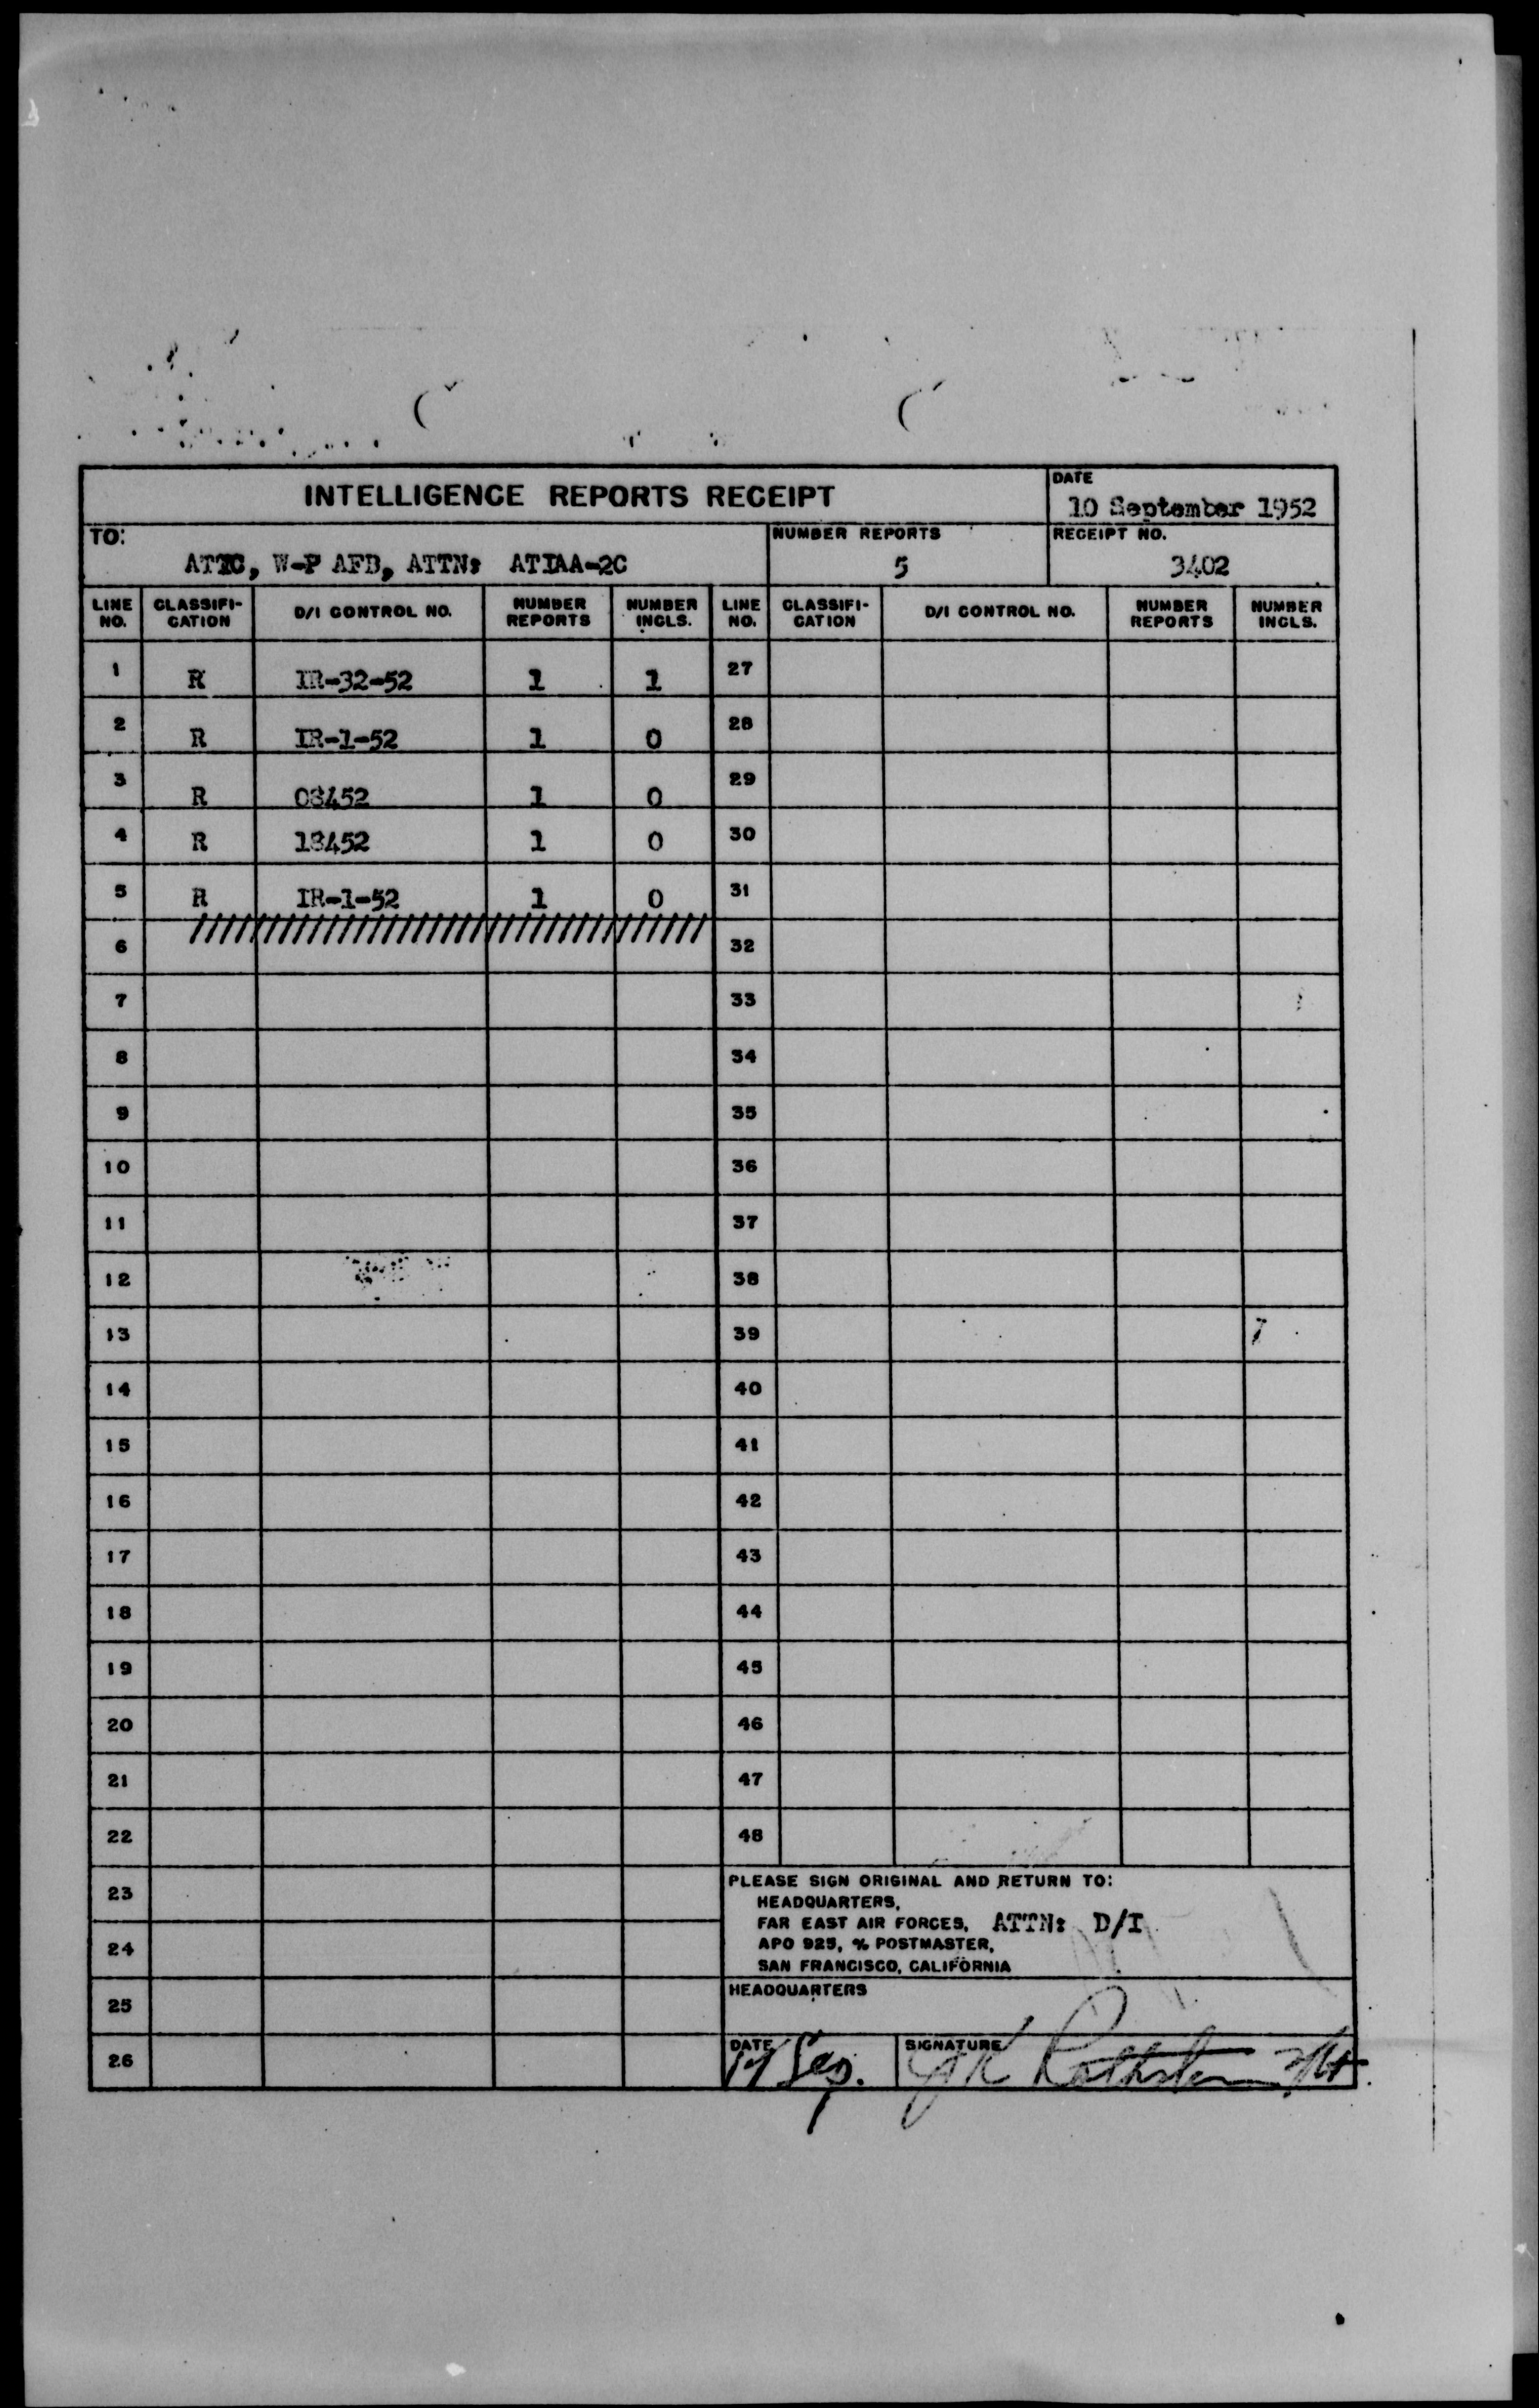 INTELLIGENCE REPORTS RECEIPT
DATE
10 September 1952
TO:
ATIC, W-P AFB, ATTN: ATIAA-2C
NUMBER REPORTS
5
RECEIPT NO.
3402
LINE NO. CLASSIFI-CATION D/I CONTROL NO. NUMBER REPORTS NUMBER INCLS. LINE NO. CLASSIFI-CATION D/I CONTROL NO. NUMBER REPORTS NUMBER INCLS.
1 R IR-32-52 1 1 27
2 R IR-1-52 1 0 28
3 R 08452 1 0 29
4 R 18452 1 0 30
5 R IR-1-52 1 0 31
6 //////////////////////////////////// 32
7 33
8 34
9 35
10 36
11 37
12 38
13 39
14 40
15 41
16 42
17 43
18 44
19 45
20 46
21 47
22 48
23
24
25
26
PLEASE SIGN ORIGINAL AND RETURN TO:
HEADQUARTERS,
FAR EAST AIR FORCES, ATTN: D/I
APO 925, % POSTMASTER,
SAN FRANCISCO, CALIFORNIA
HEADQUARTERS
DATE
Sep.
SIGNATURE